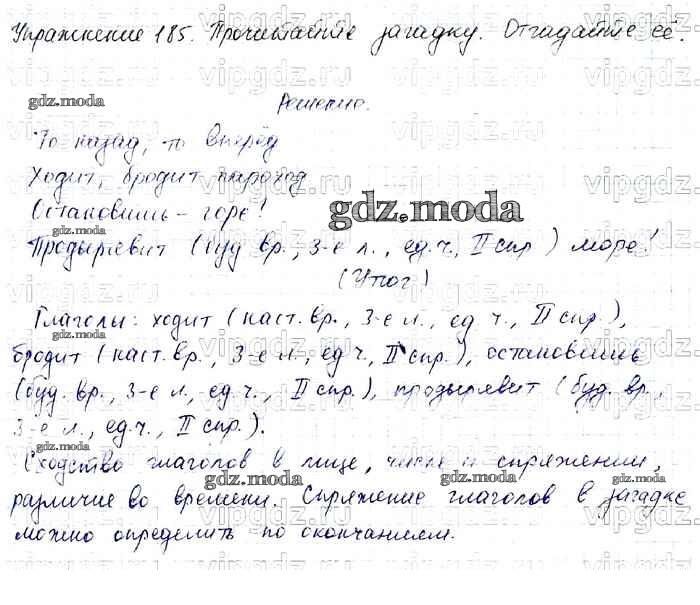 Упражнение 185. Прочитайте загадку. Отгадайте её.
gdz.moda
Решение.
То назад, то вперёд
Ходит, бродит пароход
Остановишь - горе!
gdz.moda
Продырявит (буд вр., 3-е л., ед.ч., II спр) море!
(Утюг)
Глаголы: ходит (наст. вр., 3-е л., ед ч., II спр.),
gdz.moda
gdz.moda
бродит (наст. вр., 3-е л., ед ч., II спр.), остановишь
(буд. вр., 3-е л., ед.ч., II спр.), продырявит (буд. вр.,
gdz.moda
3-е л., ед.ч., II спр.).
Сходство глаголов в лице, числе и спряжении,
gdz.moda
gdz.moda
различие во времени. Спряжение глаголов в загадке
можно определить по окончанием.